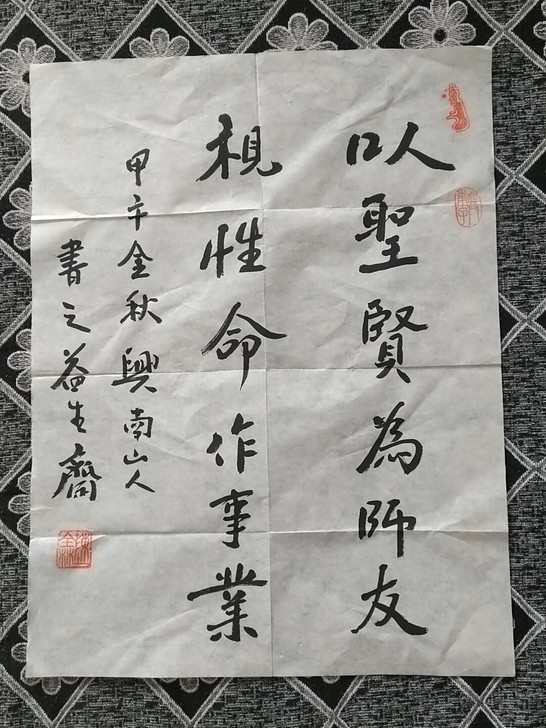 以聖賢為師友
視性命作事業
甲午金秋興南山人
書之益生齋